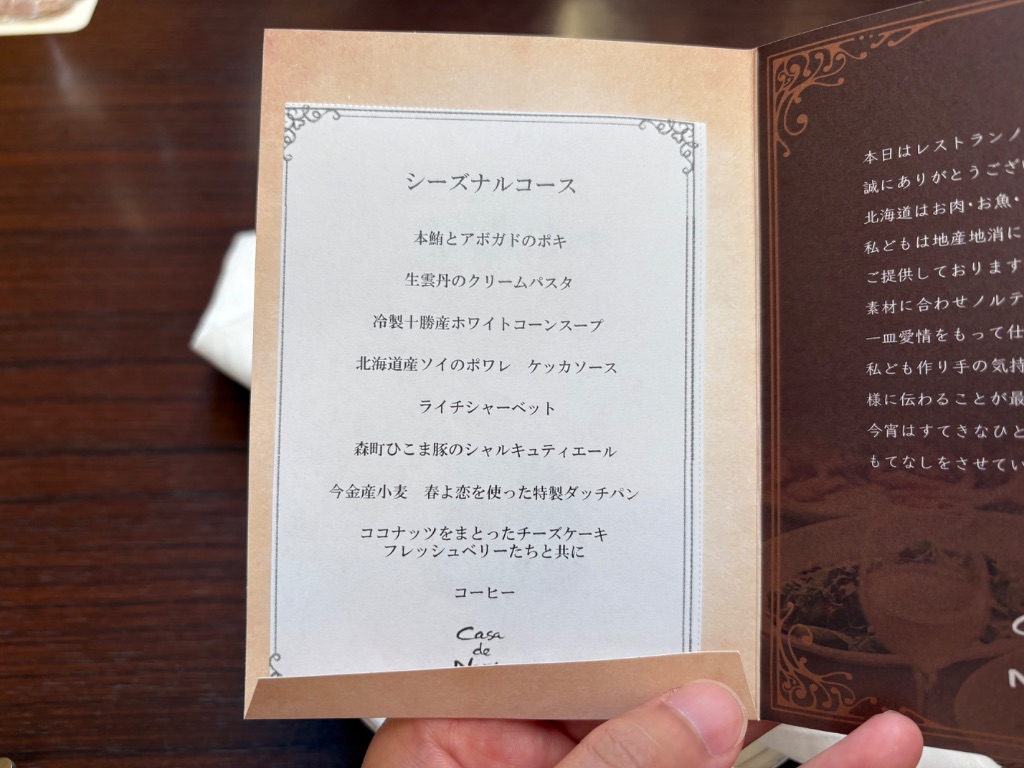 シーズナルコース
本鮪とアボガドのポキ
生雲丹のクリームパスタ
冷製十勝産ホワイトコーンスープ
北海道産ソイのポワレ　ケッカソース
ライチシャーベット
森町ひこま豚のシャルキュティエール
今金産小麦　春よ恋を使った特製ダッチパン
ココナッツをまとったチーズケーキ
フレッシュベリーたちと共に
コーヒー
Casa
de
本日はレストランノ
誠にありがとうござい
北海道はお肉・お魚・
私どもは地産地消に
ご提供しております
素材に合わせノルテ
一皿愛情をもって仕
私ども作り手の気持
様に伝わることが最
今宵はすてきなひと
もてなしをさせてい